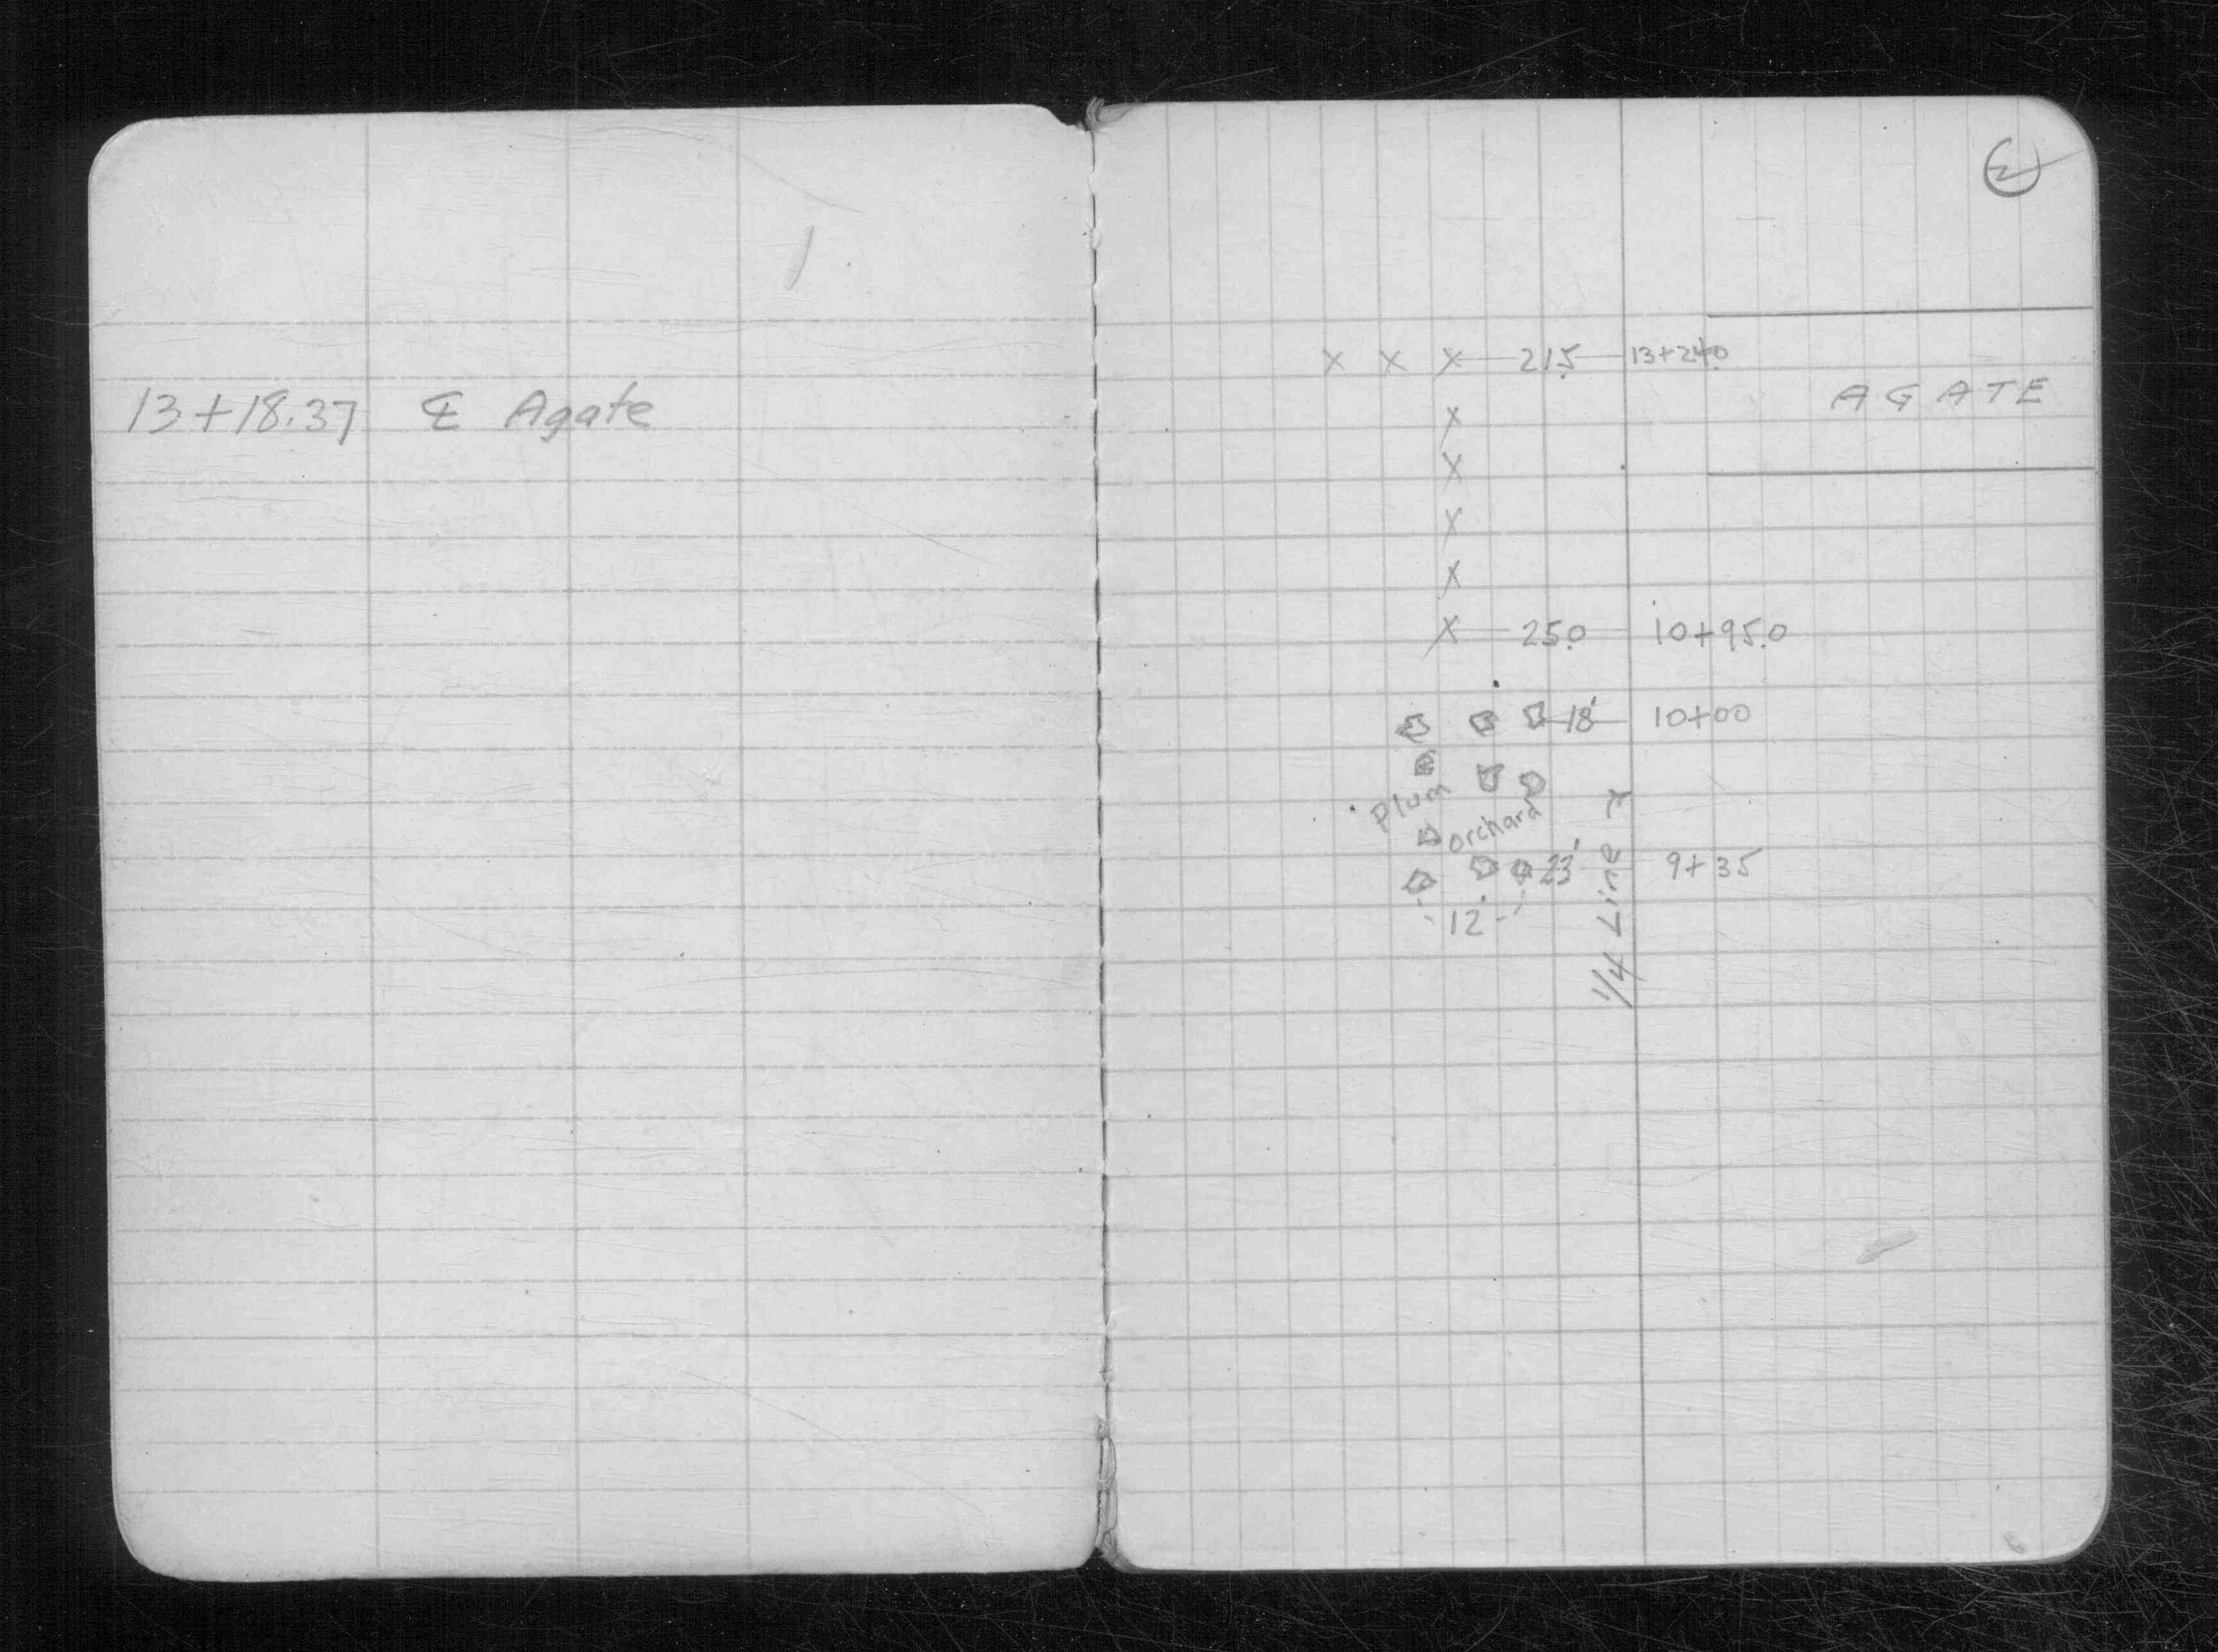 13+18.37 ℄ Agate
2
x x x 21.5 13+24.0
AGATE
x
x
x
x
x 25.0 10+95.0
18' 10+00
Plum
orchard
23' 9+35
12
1/4 Line